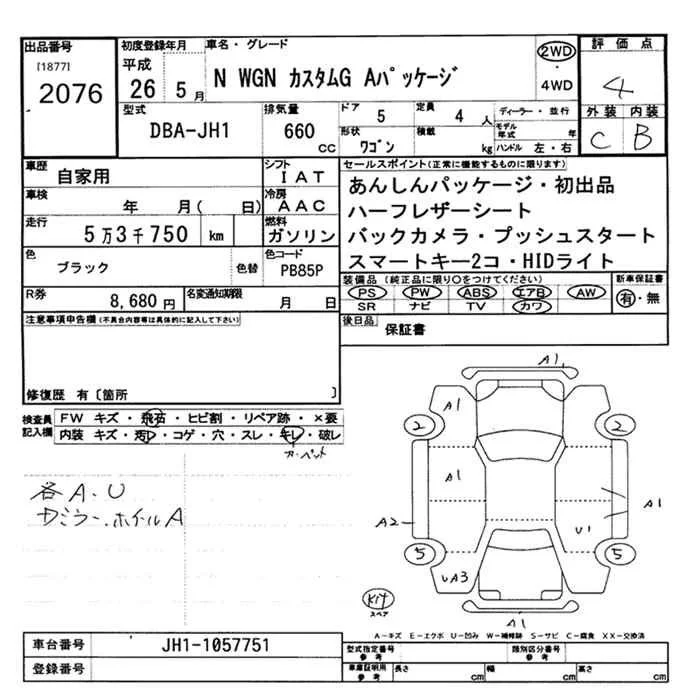 出品番号
[1877]
2076
初度登録年月
平成
26 5月
車名・グレード
N WGN カスタムG Aパッケージ
2WD
・
4WD
評価点
4
外装 内装
C B
型式
DBA-JH1
排気量
660 cc
ドア
5
形状
ワゴン
定員
4 人
積載
kg
ディーラー・並行
モデル年式 年
ハンドル 左・右
車歴
自家用
シフト
IAT
車検
年 月( 日)
冷房
AAC
走行
5万3千750 km
燃料
ガソリン
色
ブラック 色替
色コード
PB85P
R券
8,680円
名変通知期限
月 日
セールスポイント(正常に機能するものに限ります)
あんしんパッケージ・初出品
ハーフレザーシート
バックカメラ・プッシュスタート
スマートキー2コ・HIDライト
装備品(純正品に限り○をつけてください)
PS PW ABS エアB AW
SR ナビ TV カワ
新車保証書
有・無
後日品
保証書
注意事項申告欄(不具合内容等は具体的に記入して下さい)
修復歴 有〔箇所 〕
検査員記入欄
FW キズ・飛石・ヒビ割・リペア跡・×要
内装 キズ・汚レ・コゲ・穴・スレ・キレ・破レ
カーペット
各A・U
サミラー、ホイルA
A1
A1
2 2
A1
A1
A2
U1
5 5
UA3
A1
Kit
スペア
A-キズ E-エクボ U-凹み W-補修跡 S-サビ C-腐食 XX-交換済
車台番号
JH1-1057751
登録番号
型式指定番号
参考
類別区分番号
参考
車庫証明用
参考
長さ cm 幅 cm 高さ cm